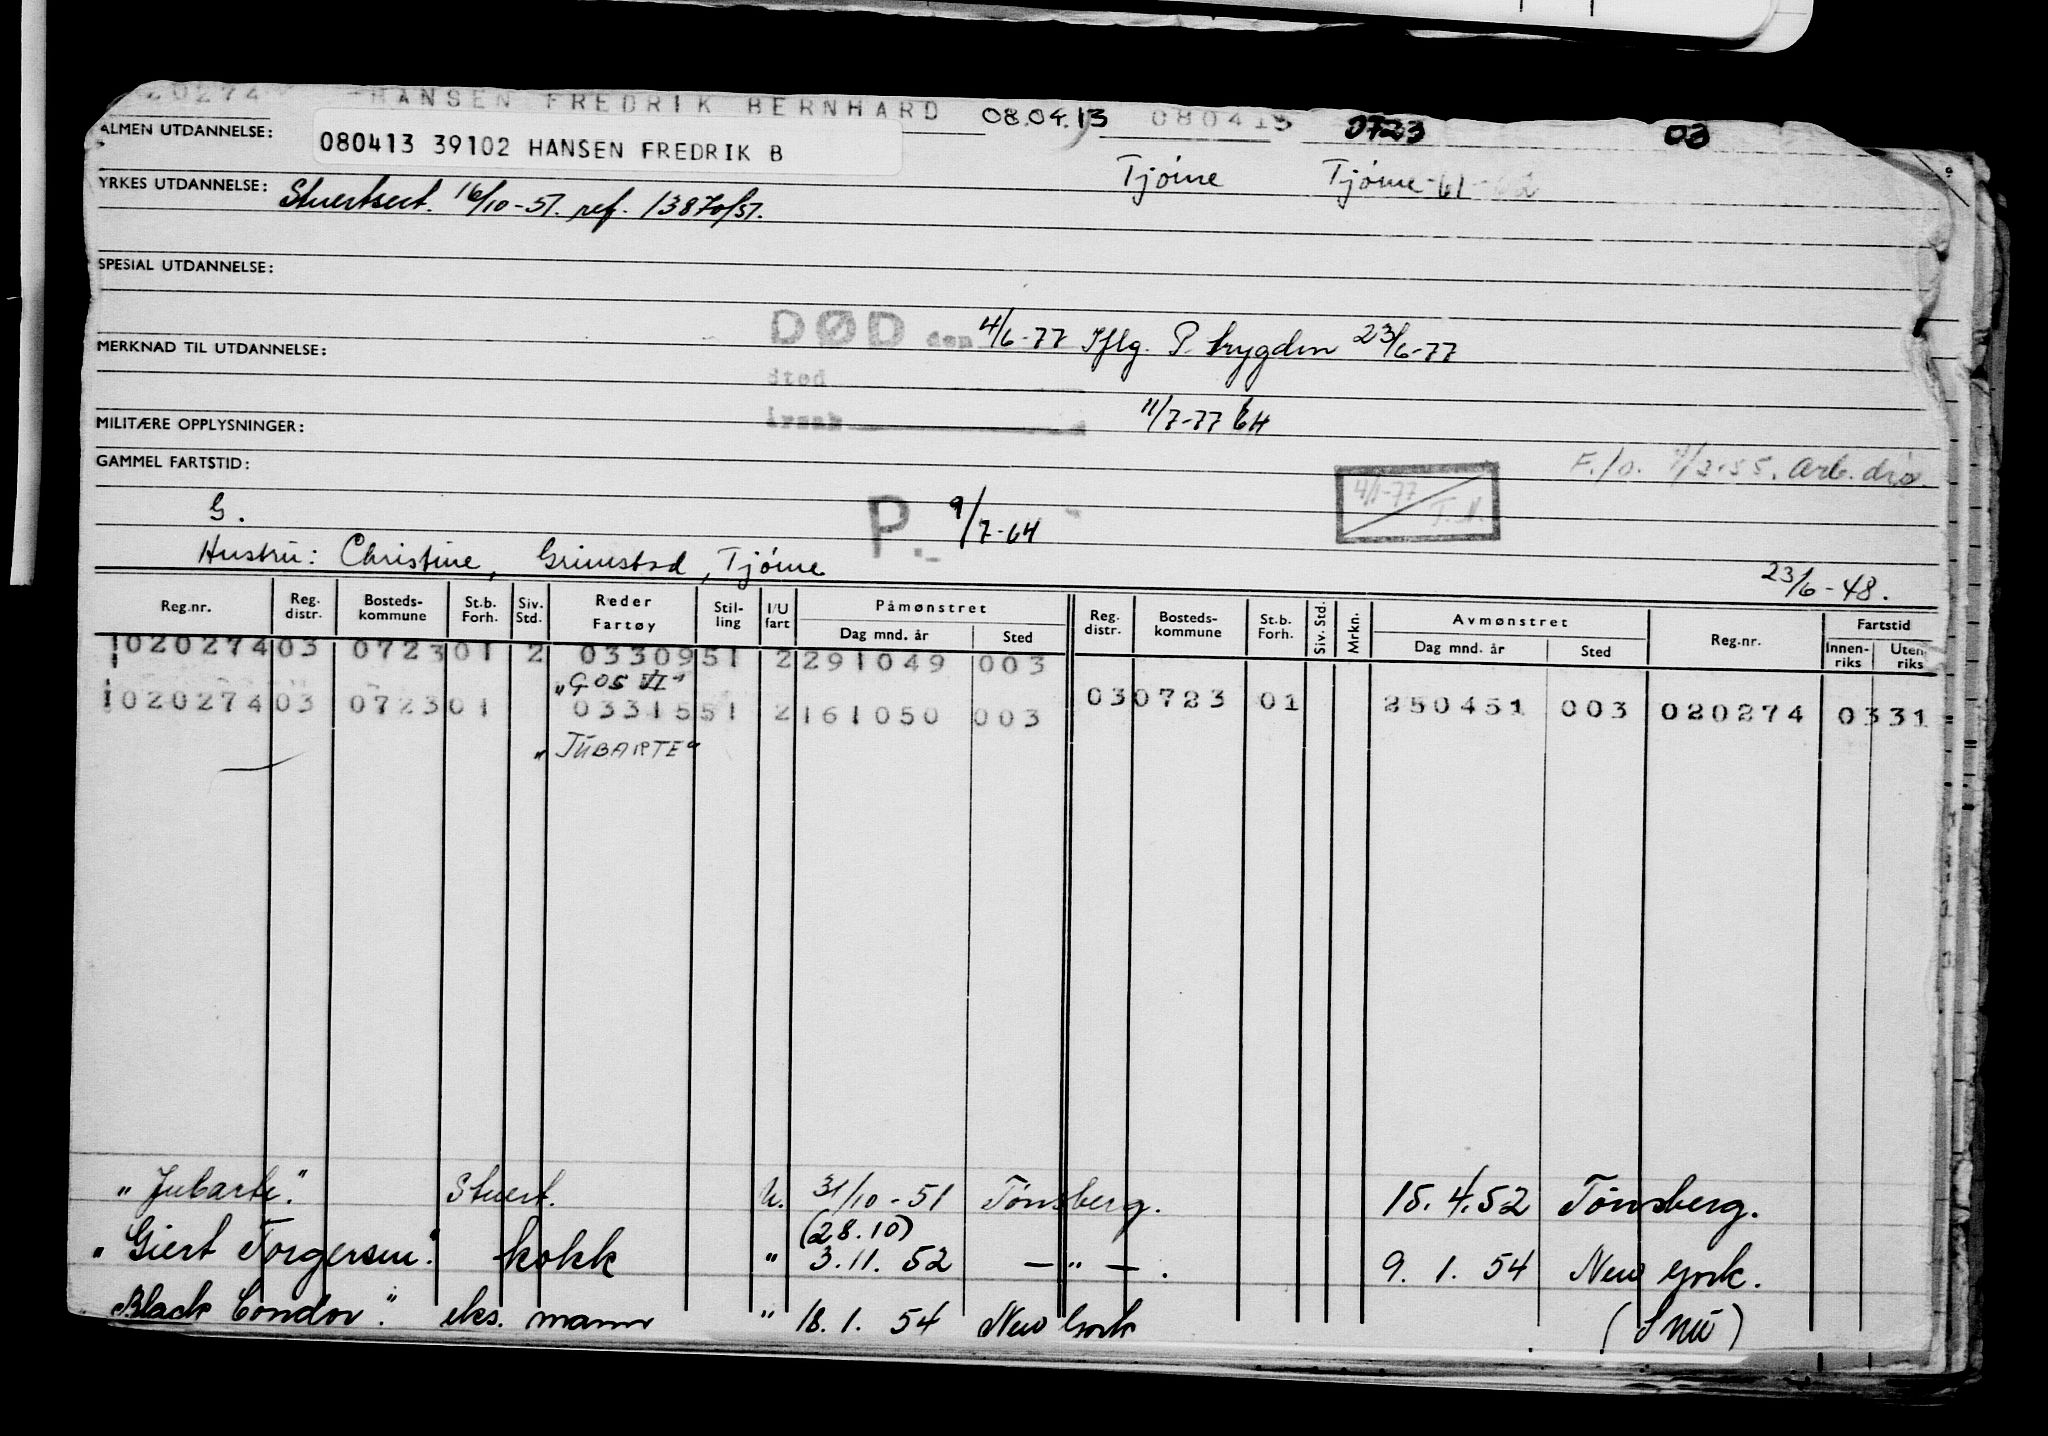 20274 HANSEN FREDRIK BERNHARD 08.04.13 080413 0723 03
ALMEN UTDANNELSE:
080413 39102 HANSEN FREDRIK B
Tjöme Tjöme -61-
YRKES UTDANNELSE: Stuertsert. 16/10-51. ref. 13870/51.
SPESIAL UTDANNELSE:
DØD den 4/6-77 Iflg. P. trygden 23/6-77
MERKNAD TIL UTDANNELSE:
sted
årsak 11/7-77 GH
MILITÆRE OPPLYSNINGER:
GAMMEL FARTSTID: F./o. 7/2-55. Arb.
4/1-77
G. P. 9/7-64
Hustru: Christine, Grimestad, Tjöme 23/6-48.
Reg.nr. Reg. distr. Bosteds-kommune St.b. Forh. Siv. Std. Reder Fartøy Stil-ling I/U fart Påmønstret Dag mnd. år Sted Reg. distr. Bosteds-kommune St.b. Forh. Siv. Std. Mrkn. Avmønstret Dag mnd. år Sted Reg.nr. Fartstid Innen-riks Uten riks
1020274 03 0723 01 2 03309 51 2 291049 003
"GOS VI"
1020274 03 0723 01 03315 51 2 161050 003 03 0723 01 250451 003 020274 0331
"JUBARTE"
"Jubarte." Stuert. U. 31/10-51 Tönsberg. 15.4.52 Tönsberg.
(28.10)
"Giert Torgersen". kokk " 3.11.52 -"-. 9.1.54 New York.
Black Condor." eks. mann " 18.1.54 New York (Snu)